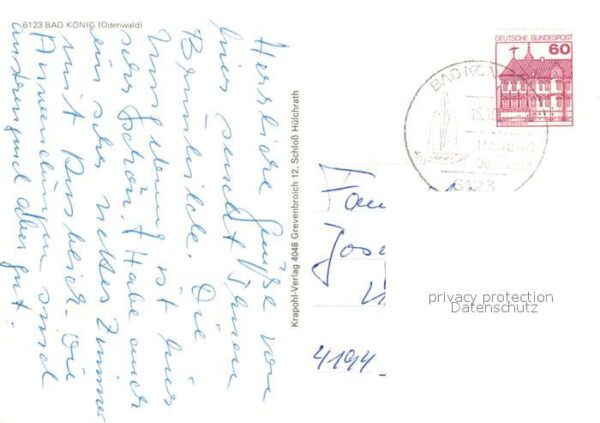 6123 BAD KÖNIG (Odenwald)
Herzliche Grüße von
hier sendet Ihnen
Brunhilde. Die
Umgebung ist hier
sehr schön. Habe auch
ein sehr nettes Zimmer
mit Ausblick. Die
Anwendungen sind
anstrengend aber gut.
Krapohl-Verlag 4048 Grevenbroich 12, Schloß Hülchrath
DEUTSCHE BUNDESPOST
60
BAD KÖ
Heilbad
Odenwald
6123
Fam
Jose
4194
privacy protection
Datenschutz